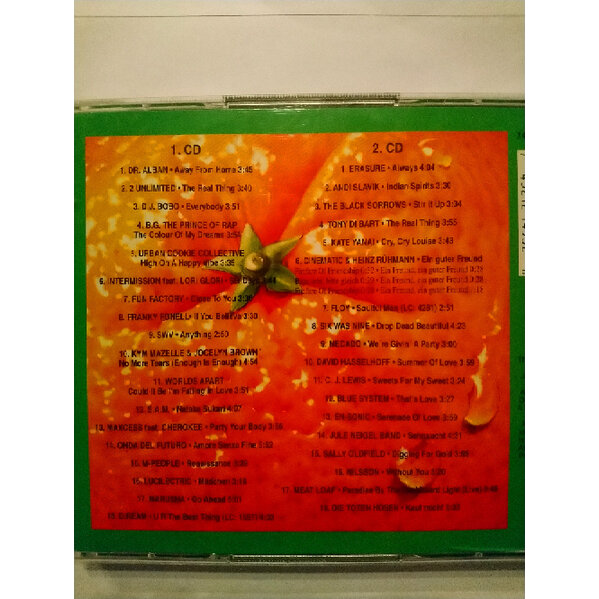 1. CD
1. DR. ALBAN • Away From Home 3:45
2. 2 UNLIMITED • The Real Thing 3:40
3. D.J. BOBO • Everybody 3:51
4. B.G. THE PRINCE OF RAP
The Colour Of My Dreams 3:51
5. URBAN COOKIE COLLECTIVE
High On A Happy Vibe 3:35
6. INTERMISSION feat. LORI GLORI • Days
7. FUN FACTORY • Close To You 3:30
8. FRANKY FONELL • If You Believe 3:30
9. SWV • Anything
10. KYM MAZELLE & JOCELYN BROWN
No More Tears (Enough Is Enough) 4:54
11. WORLDS APART
Could It Be I'm Falling In Love 3:51
12. S.A.M. •
13. MAXCESS feat. CHEROKEE • Party Your Body
14. ONDA DEL FUTURO • Amore Senza Fine
15. M-PEOPLE • Renaissance
16. • Mädchen
17. • Go Ahead
18. • U R The Best Thing
2. CD
1. ERASURE • Always 4:04
2. ANDI SLAVIK • Indian Spirits 3:30
3. THE BLACK SORROWS • Stir It Up 3:34
4. TONY DI BART • The Real Thing 3:55
5. KATE YANAI • Cry, Cry Louise 3:43
6. CINEMATIC & HEINZ RÜHMANN • Ein guter Freund
Ein Freund, ein guter Freund 0:28
Ein Freund, ein guter Freund 0:28
Ein Freund, ein guter Freund
7. FLOY • Soulful Man (LC: 4281) 2:51
8. SIX WAS NINE • Drop Dead Beautiful 4:23
9. MECADO • We're Givin' A Party 3:00
10. DAVID HASSELHOFF • Summer Of Love 3:59
11. C. J. LEWIS • Sweets For My Sweet 3:24
12. BLUE SYSTEM • That's Love 3:27
13. EN-SONIC • Serenade Of Love 3:59
14. JULE NEIGEL BAND • Sehnsucht 4:21
15. SALLY OLDFIELD • Digging For Gold
16. NILSSON • Without You
17. MEAT LOAF • Paradise By The Dashboard Light (Live)
18. DIE TOTEN HOSEN •